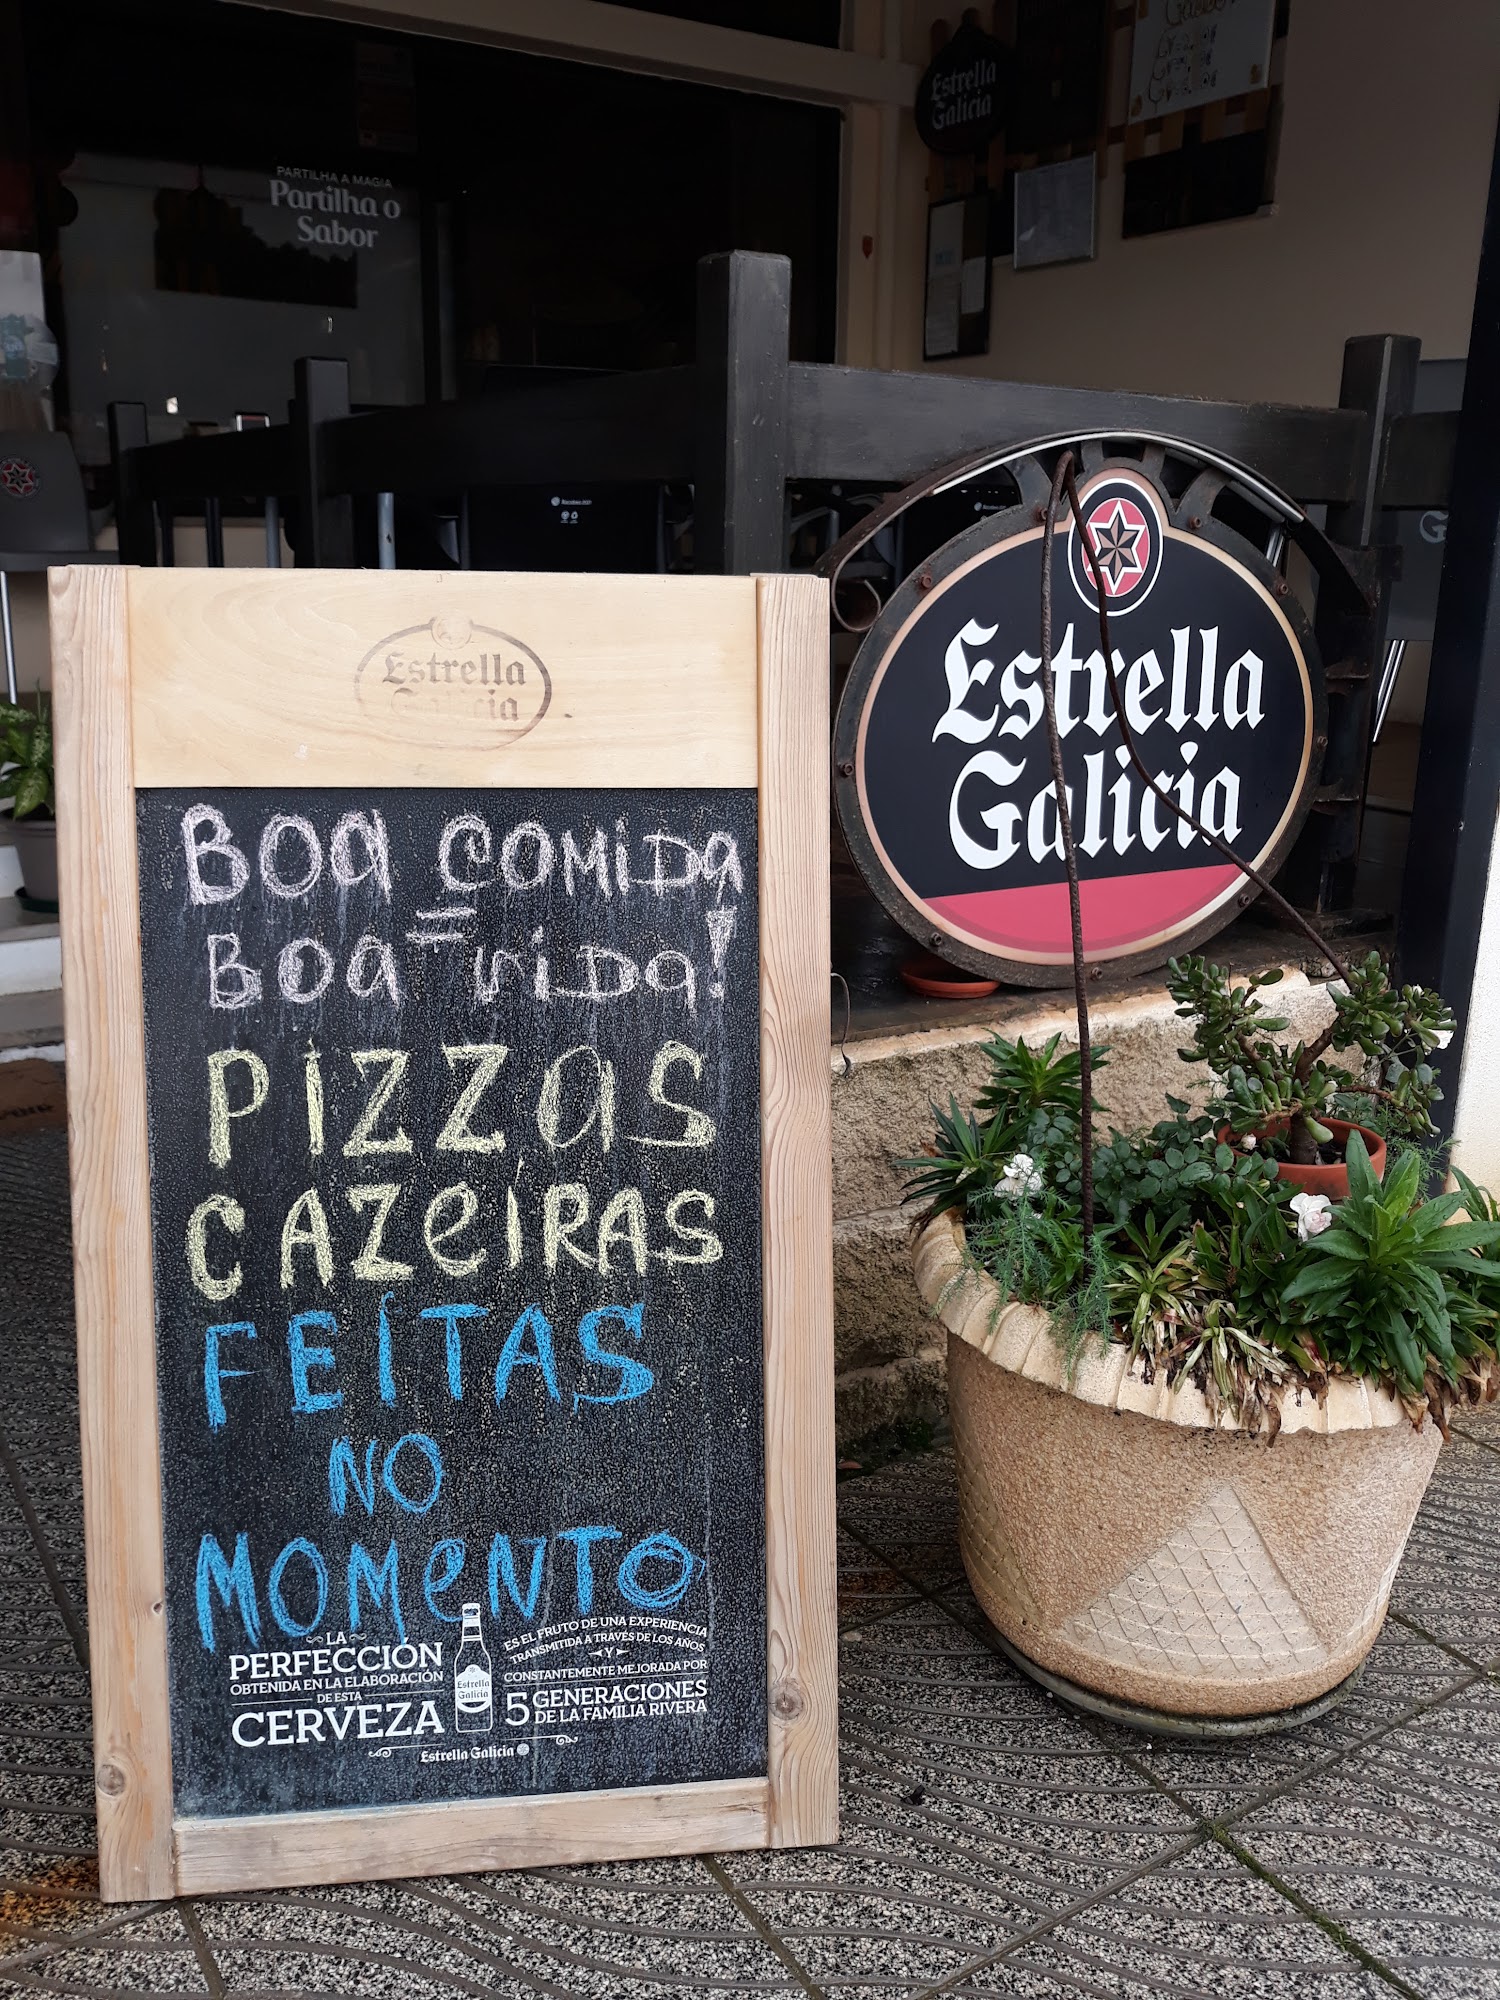 PARTILHA A MAGIA
Partilha o
Sabor
Estrella
Galicia
Estrella
Galicia
Estrella
Galicia
BOa COMiDa
=
BOa ViDa!
PiZZaS
CAZeiRAS
FEiTAS
NO
MOMeNTO
LA
PERFECCIÓN
OBTENIDA EN LA ELABORACIÓN
DE ESTA
CERVEZA
Estrella
Galicia
ES EL FRUTO DE UNA EXPERIENCIA
TRANSMITIDA A TRAVÉS DE LOS AÑOS
Y
CONSTANTEMENTE MEJORADA POR
5 GENERACIONES
DE LA FAMILIA RIVERA
Estrella Galicia